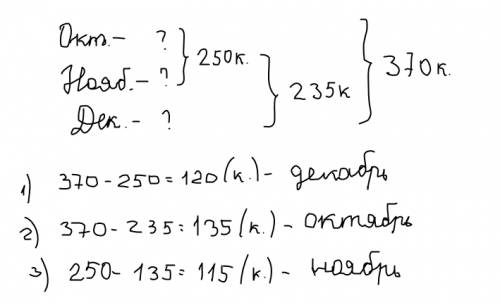 Окт.- ? 250к.
Нояб.- ? 235к 370к.
Дек.- ?
1) 370-250=120(к.)- декабрь
2) 370-235=135(к.)- октябрь
3) 250-135=115(к.)- ноябрь